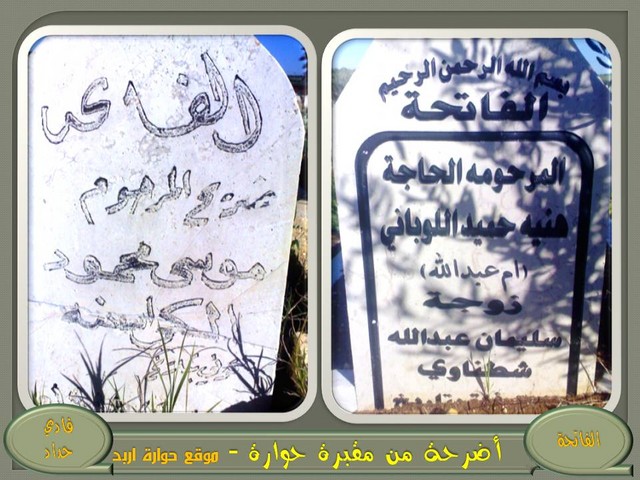 ضريح المرحوم
موسى محمود
بسم الله الرحمن الرحيم
الفاتحة
المرحومه الحاجة
هنيه اللوباني
(ام عبدالله)
زوجة
سليمان عبدالله
شطناوي
الفاتحة
أضرحة من مقبرة حوارة - موقع حوارة اربد
فادي
حداد